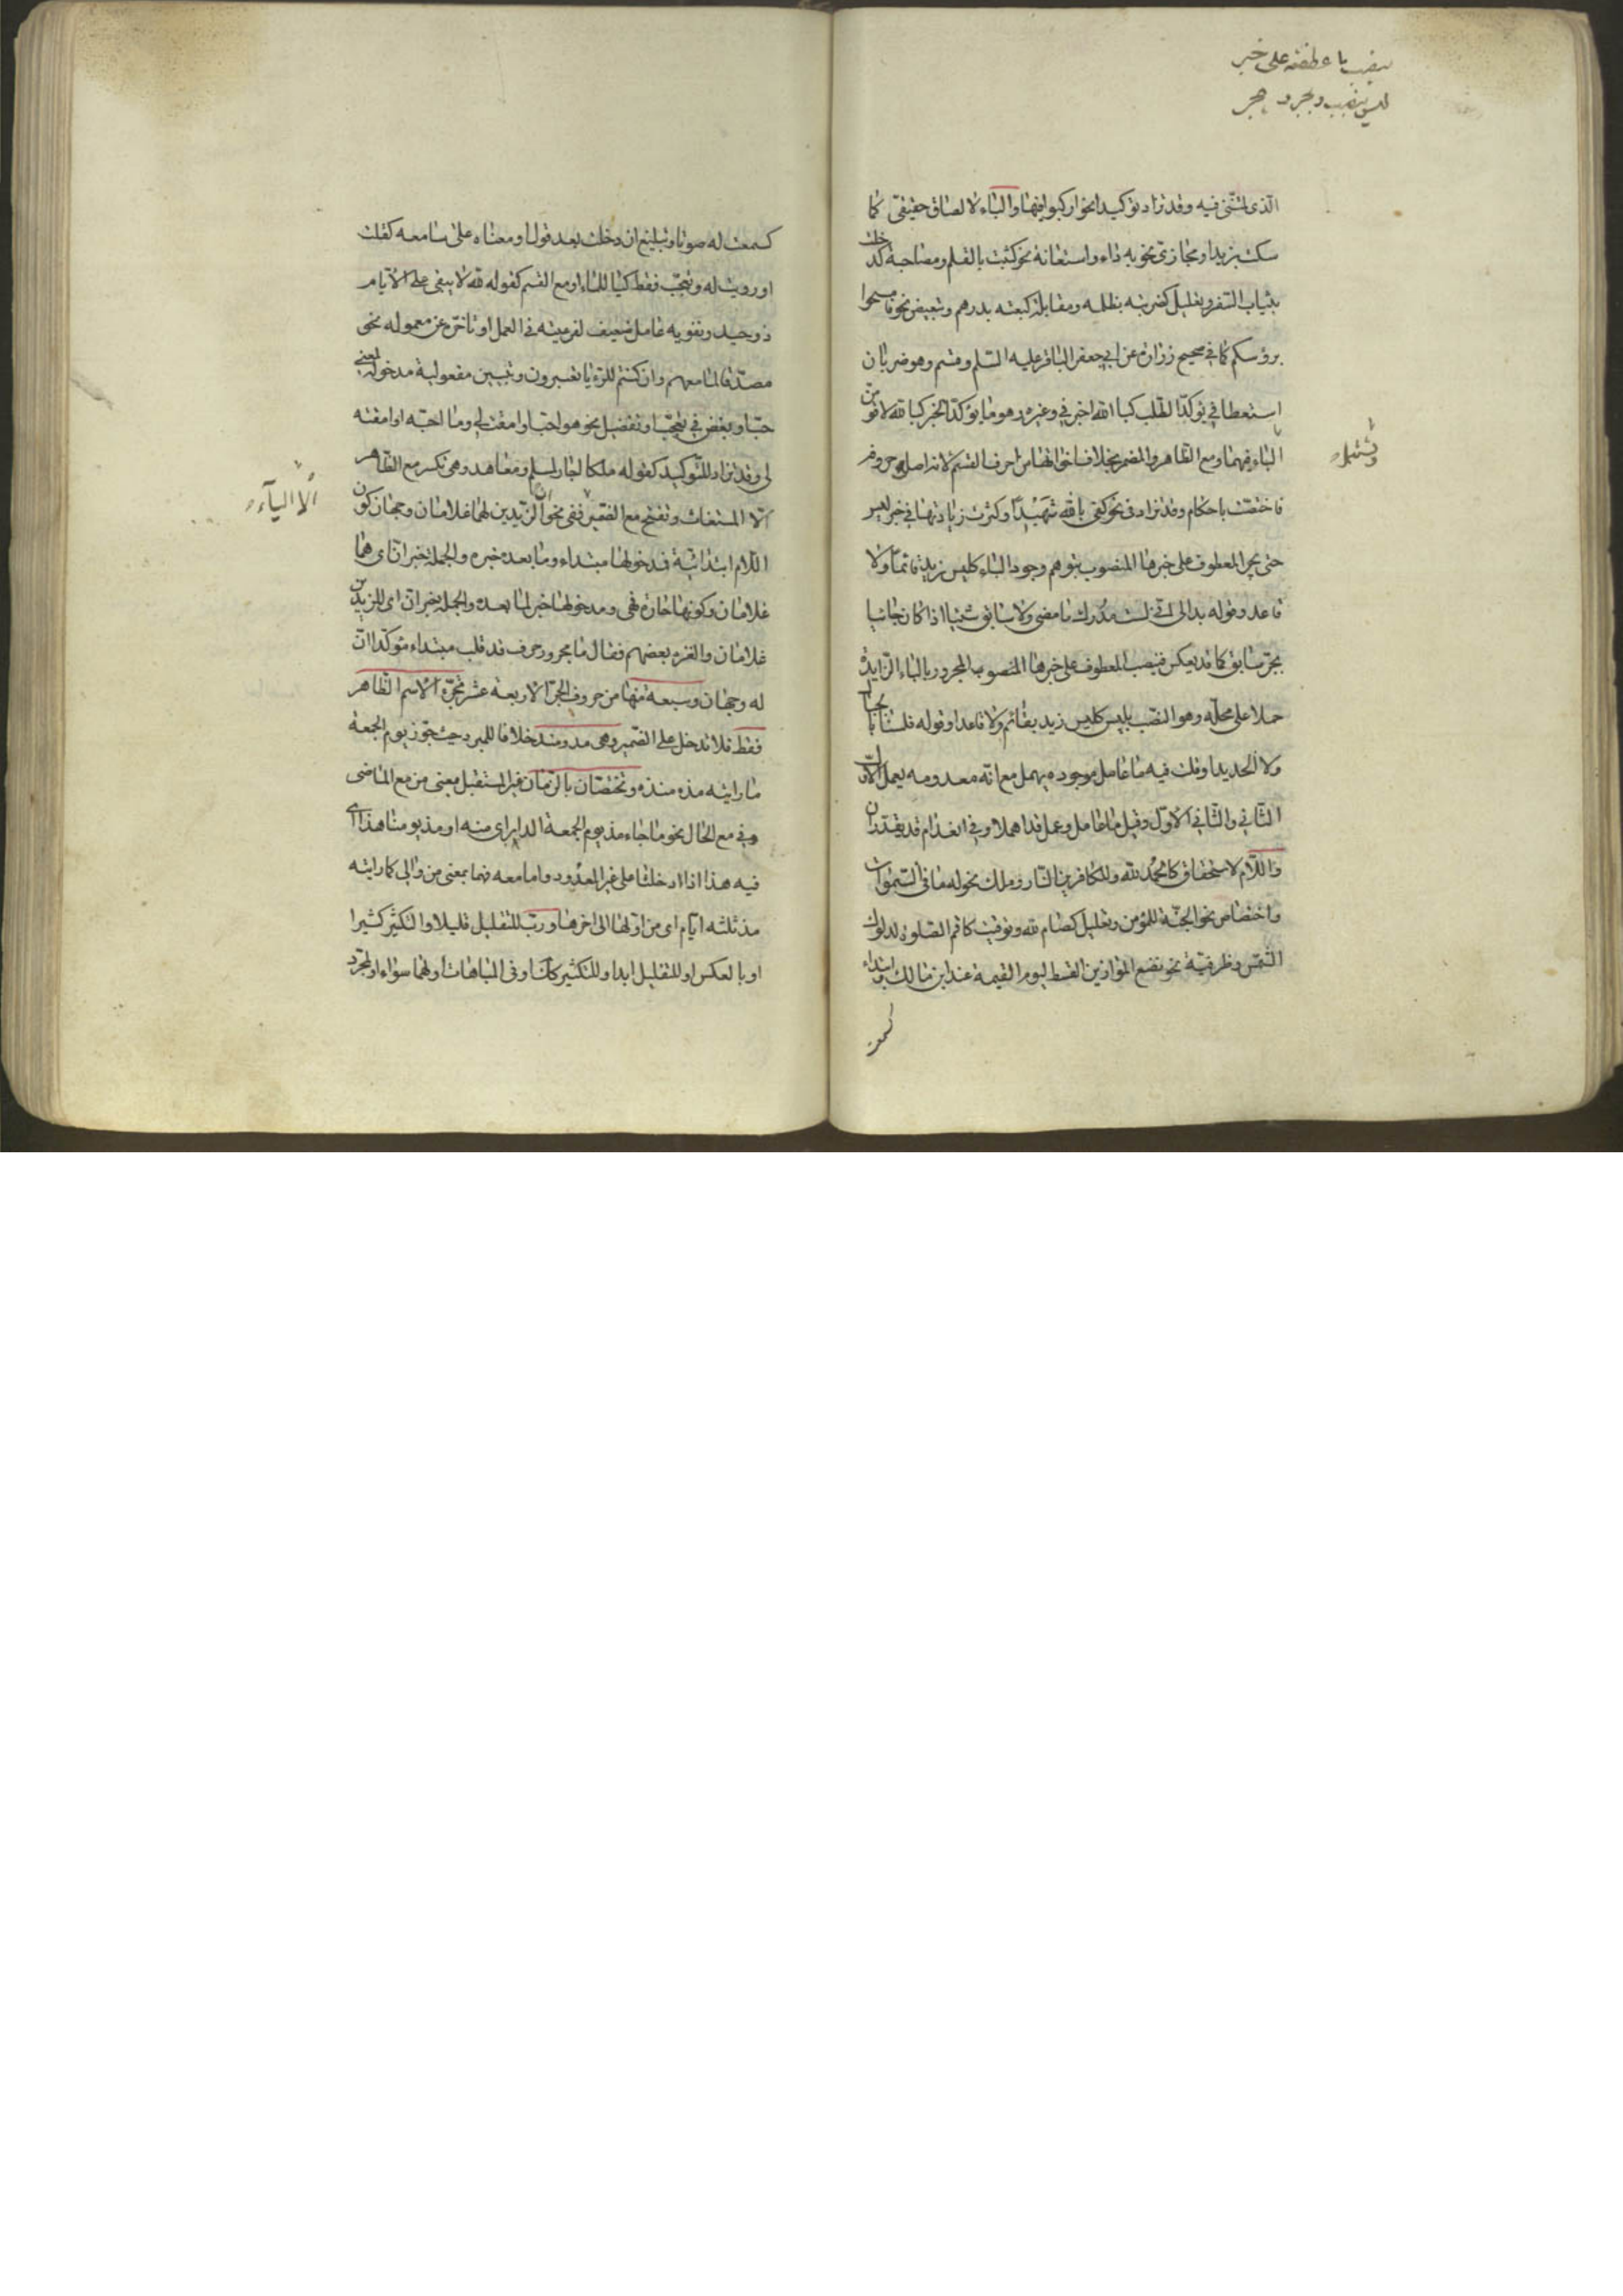 ينصب ما عطفته على خبر
ليس ينصب ويجر
الذى لمتنى فيه وقد تزاد توكيدا نحو اركبوا فيها والباء لالصاق حقيقى كا
سكت بزيد او مجازى نحو به داء واستعانة نحو كتبت بالقلم ومصاحبة كدخلت
بثياب السفر وتعليل كضربته بظلمه ومقابلة كبعته بدرهم وتبعيض نحو فامسحوا
برؤسكم كما فى صحيح زرارة عن ابى جعفر الباقر عليه السلم وقسم وهو ضربان
استعطافى يؤكد الطلب كبالله اخبرنى وغيره وهو ما يؤكد الخبر كبالله لاقومن
الباء فيهما ومع الظاهر والمضمر بخلاف اخواتها من احرف القسم لانها اصل حروفه
وتستعمل
فاختصت باحكام وقد تزاد فى نحو كفى بالله شهيدا وكثرت زيادتها فى خبر ليس
حتى يجر المعطوف على خبرها المنصوب بتوهم وجود الباء كليس زيد قائما ولا
قاعد وقوله بدا لى انى لست مدرك ما مضى ولا سابق شيئا اذا كان جائيا
بجر سابق كما قد يعكس فينصب المعطوف على خبرها المنصوب المجرور بالباء الزايدة
حملا على محله وهو النصب بليس كليس زيد بقائم ولا قاعدا وقوله فلسنا بالجبال
ولا الحديدا وقلت فيه ما عامل موجوده يهمل مع انه معدومه يعمل الاول
الثانى والثانى الاول وقيل ما عامل وعمل قد اهملا وفى انعدام قد يقدران
واللام لاستحقاق كالحمد لله وللكافرين النار وملك نحو له ما فى السموات
واختصاص نحو الجنة للمؤمن وتعليل كصام لله وتوقيت كاقم الصلوة لدلوك
الشمس وظرفية نحو نضع الموازين القسط ليوم القيمة عند ابن مالك وابتداء
كسمعت
كسمعت له صوتا وتبليغ ان دخلت بعد قول او معناه على سامعه كقلت
اورويت له وتعجب فقط كيا للماء او مع القسم كقوله لله لا يبقى على الايام
ذو حيد وتقوية عامل ضعيف لفرعيته فى العمل او تاخره عن معموله نحو
مصدقا لما معهم وان كنتم للرؤيا تعبرون وتبيين مفعولية مدخوله لمعنى
حب او بغض فى تعجب او تفضيل نحو هو احب او امقت لى وما احبه او امقته
لى وقد تزاد للتوكيد كقوله ملكا اجار لمسلم ومعاهد وهى تكسر مع الظاهر
الا المستغاث وتفتح مع الضمير ففى نحو ان الزيدين لهما غلامان وجهان كون
الا الياء
اللام ابتدائية فدخولها مبتداء وما بعده خبره والجملة خبر ان اى هما
غلامان وكونها جارة فهى ومدخولها خبر لما بعده والجملة خبر ان اى للزيدين
غلامان والغزه بعضهم فقال ما مجرور حرف قد قلب مبتداء مؤكدا ان
له وجهان وسبعة منها من حروف الجر الاربعة عشر تجر الاسم الظاهر
فقط فلا تدخل على الضمير وهى مذ ومنذ خلافا للمبرد حيث جوز يوم الجمعة
ما رايته مذه منذه وتختصان بالزمان غير المستقبل بمعنى من مع الماضى
وفى مع الحال نحو ما جاء مذ يوم الجمعة الدابر اى منه او مذ يومنا هذا اى
فيه هذا اذا ادخلتا على غير المعدود واما معه فهما بمعنى من والى كما رايته
مذ ثلثه ايام اى من اولها الى اخرها ورب للتقليل قليلا والتكثير كثيرا
او بالعكس او للتقليل ابدا وللتكثير كذا وفى المباهات او لهما سواء او لمجرد